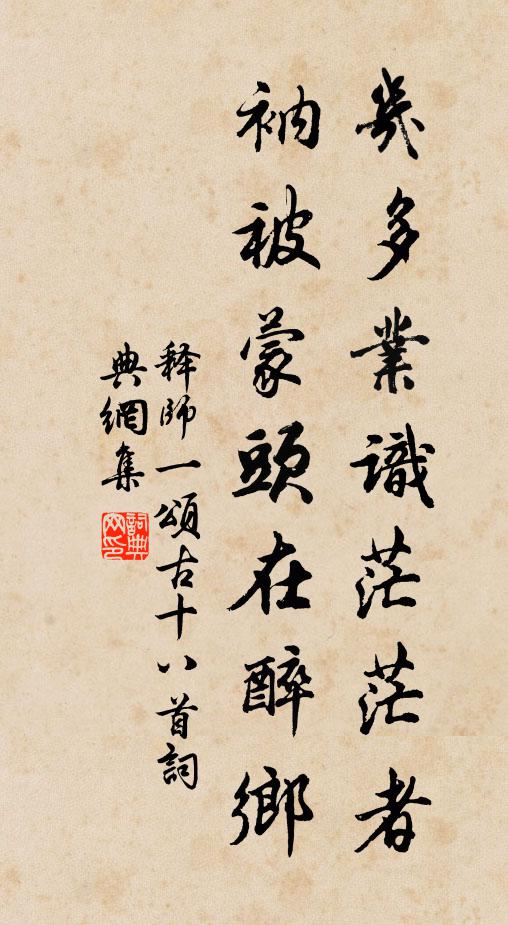 幾多業識茫茫者
衲被蒙頭在醉鄉
释師一頌古十八首詞
典網集
詞典網印